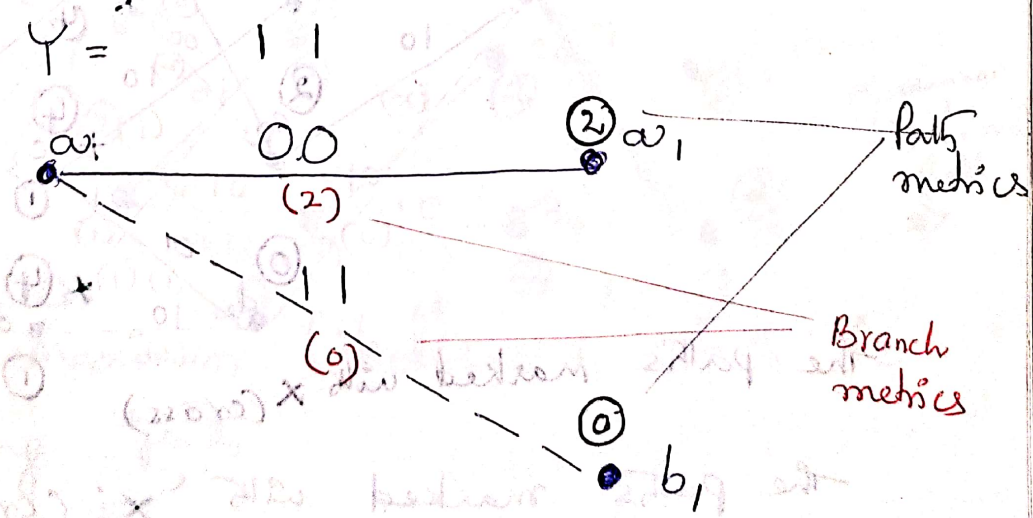 Y = 11
a 00 (2) ② a₁
Path metrics
11
(0)
Branch metrics
⓪ b₁